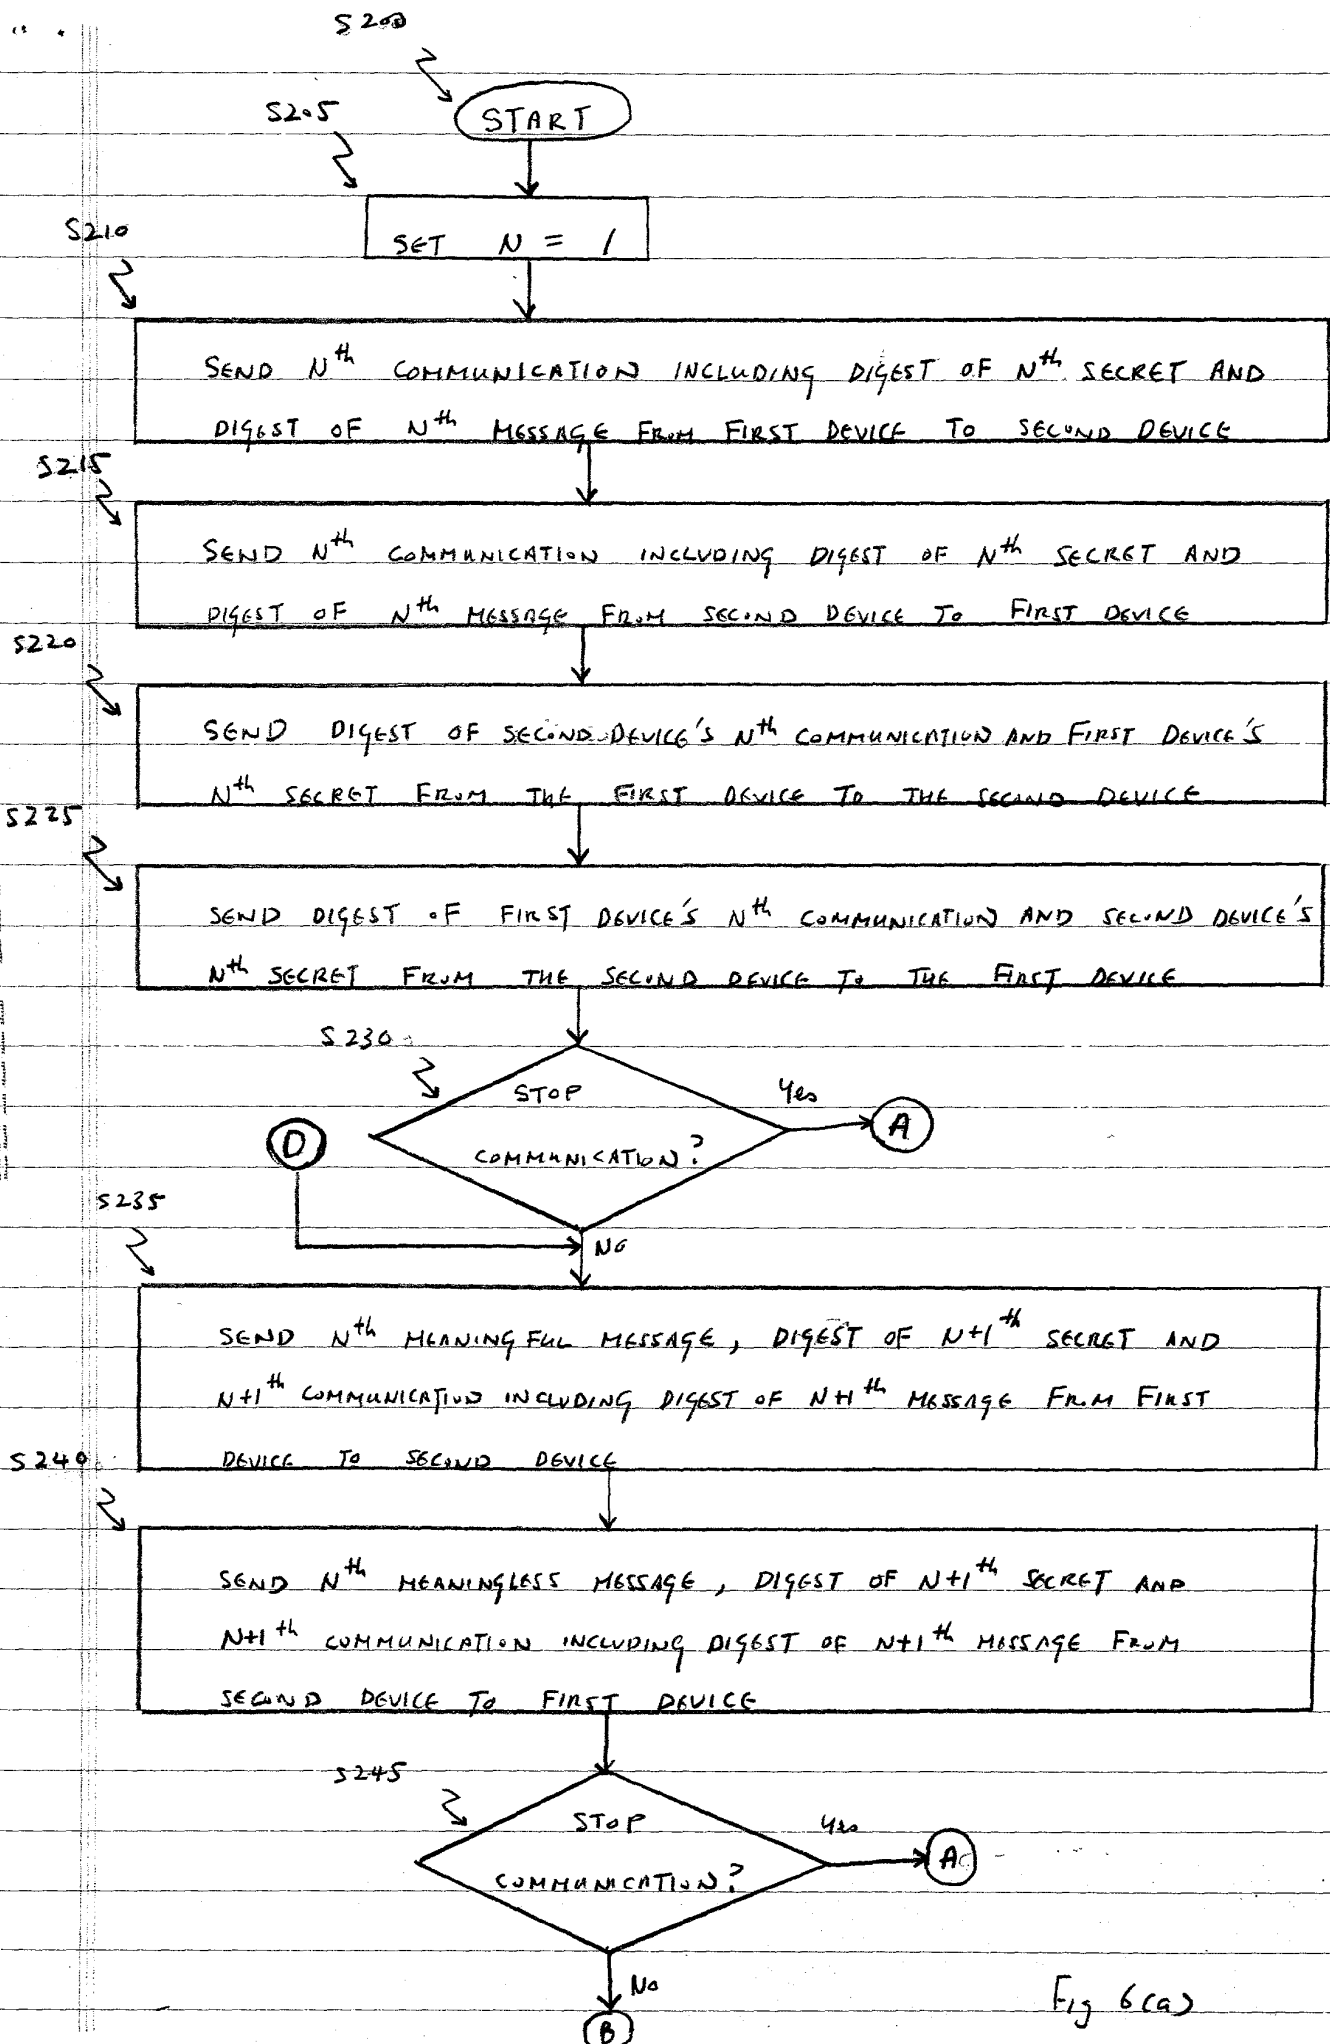 S200
START
S205
SET N = 1
S210
SEND Nth COMMUNICATION INCLUDING DIGEST OF Nth SECRET AND
DIGEST OF Nth MESSAGE FROM FIRST DEVICE TO SECOND DEVICE
S215
SEND Nth COMMUNICATION INCLUDING DIGEST OF Nth SECRET AND
DIGEST OF Nth MESSAGE FROM SECOND DEVICE TO FIRST DEVICE
S220
SEND DIGEST OF SECOND DEVICE'S Nth COMMUNICATION AND FIRST DEVICE'S
Nth SECRET FROM THE FIRST DEVICE TO THE SECOND DEVICE
S225
SEND DIGEST OF FIRST DEVICE'S Nth COMMUNICATION AND SECOND DEVICE'S
Nth SECRET FROM THE SECOND DEVICE TO THE FIRST DEVICE
S230
STOP
COMMUNICATION?
Yes
A
D
NO
S235
SEND Nth MEANINGFUL MESSAGE, DIGEST OF N+1th SECRET AND
N+1th COMMUNICATION INCLUDING DIGEST OF N+1th MESSAGE FROM FIRST
DEVICE TO SECOND DEVICE
S240
SEND Nth MEANINGLESS MESSAGE, DIGEST OF N+1th SECRET AND
N+1th COMMUNICATION INCLUDING DIGEST OF N+1th MESSAGE FROM
SECOND DEVICE TO FIRST DEVICE
S245
STOP
COMMUNICATION?
Yes
A
No
B
Fig 6(a)